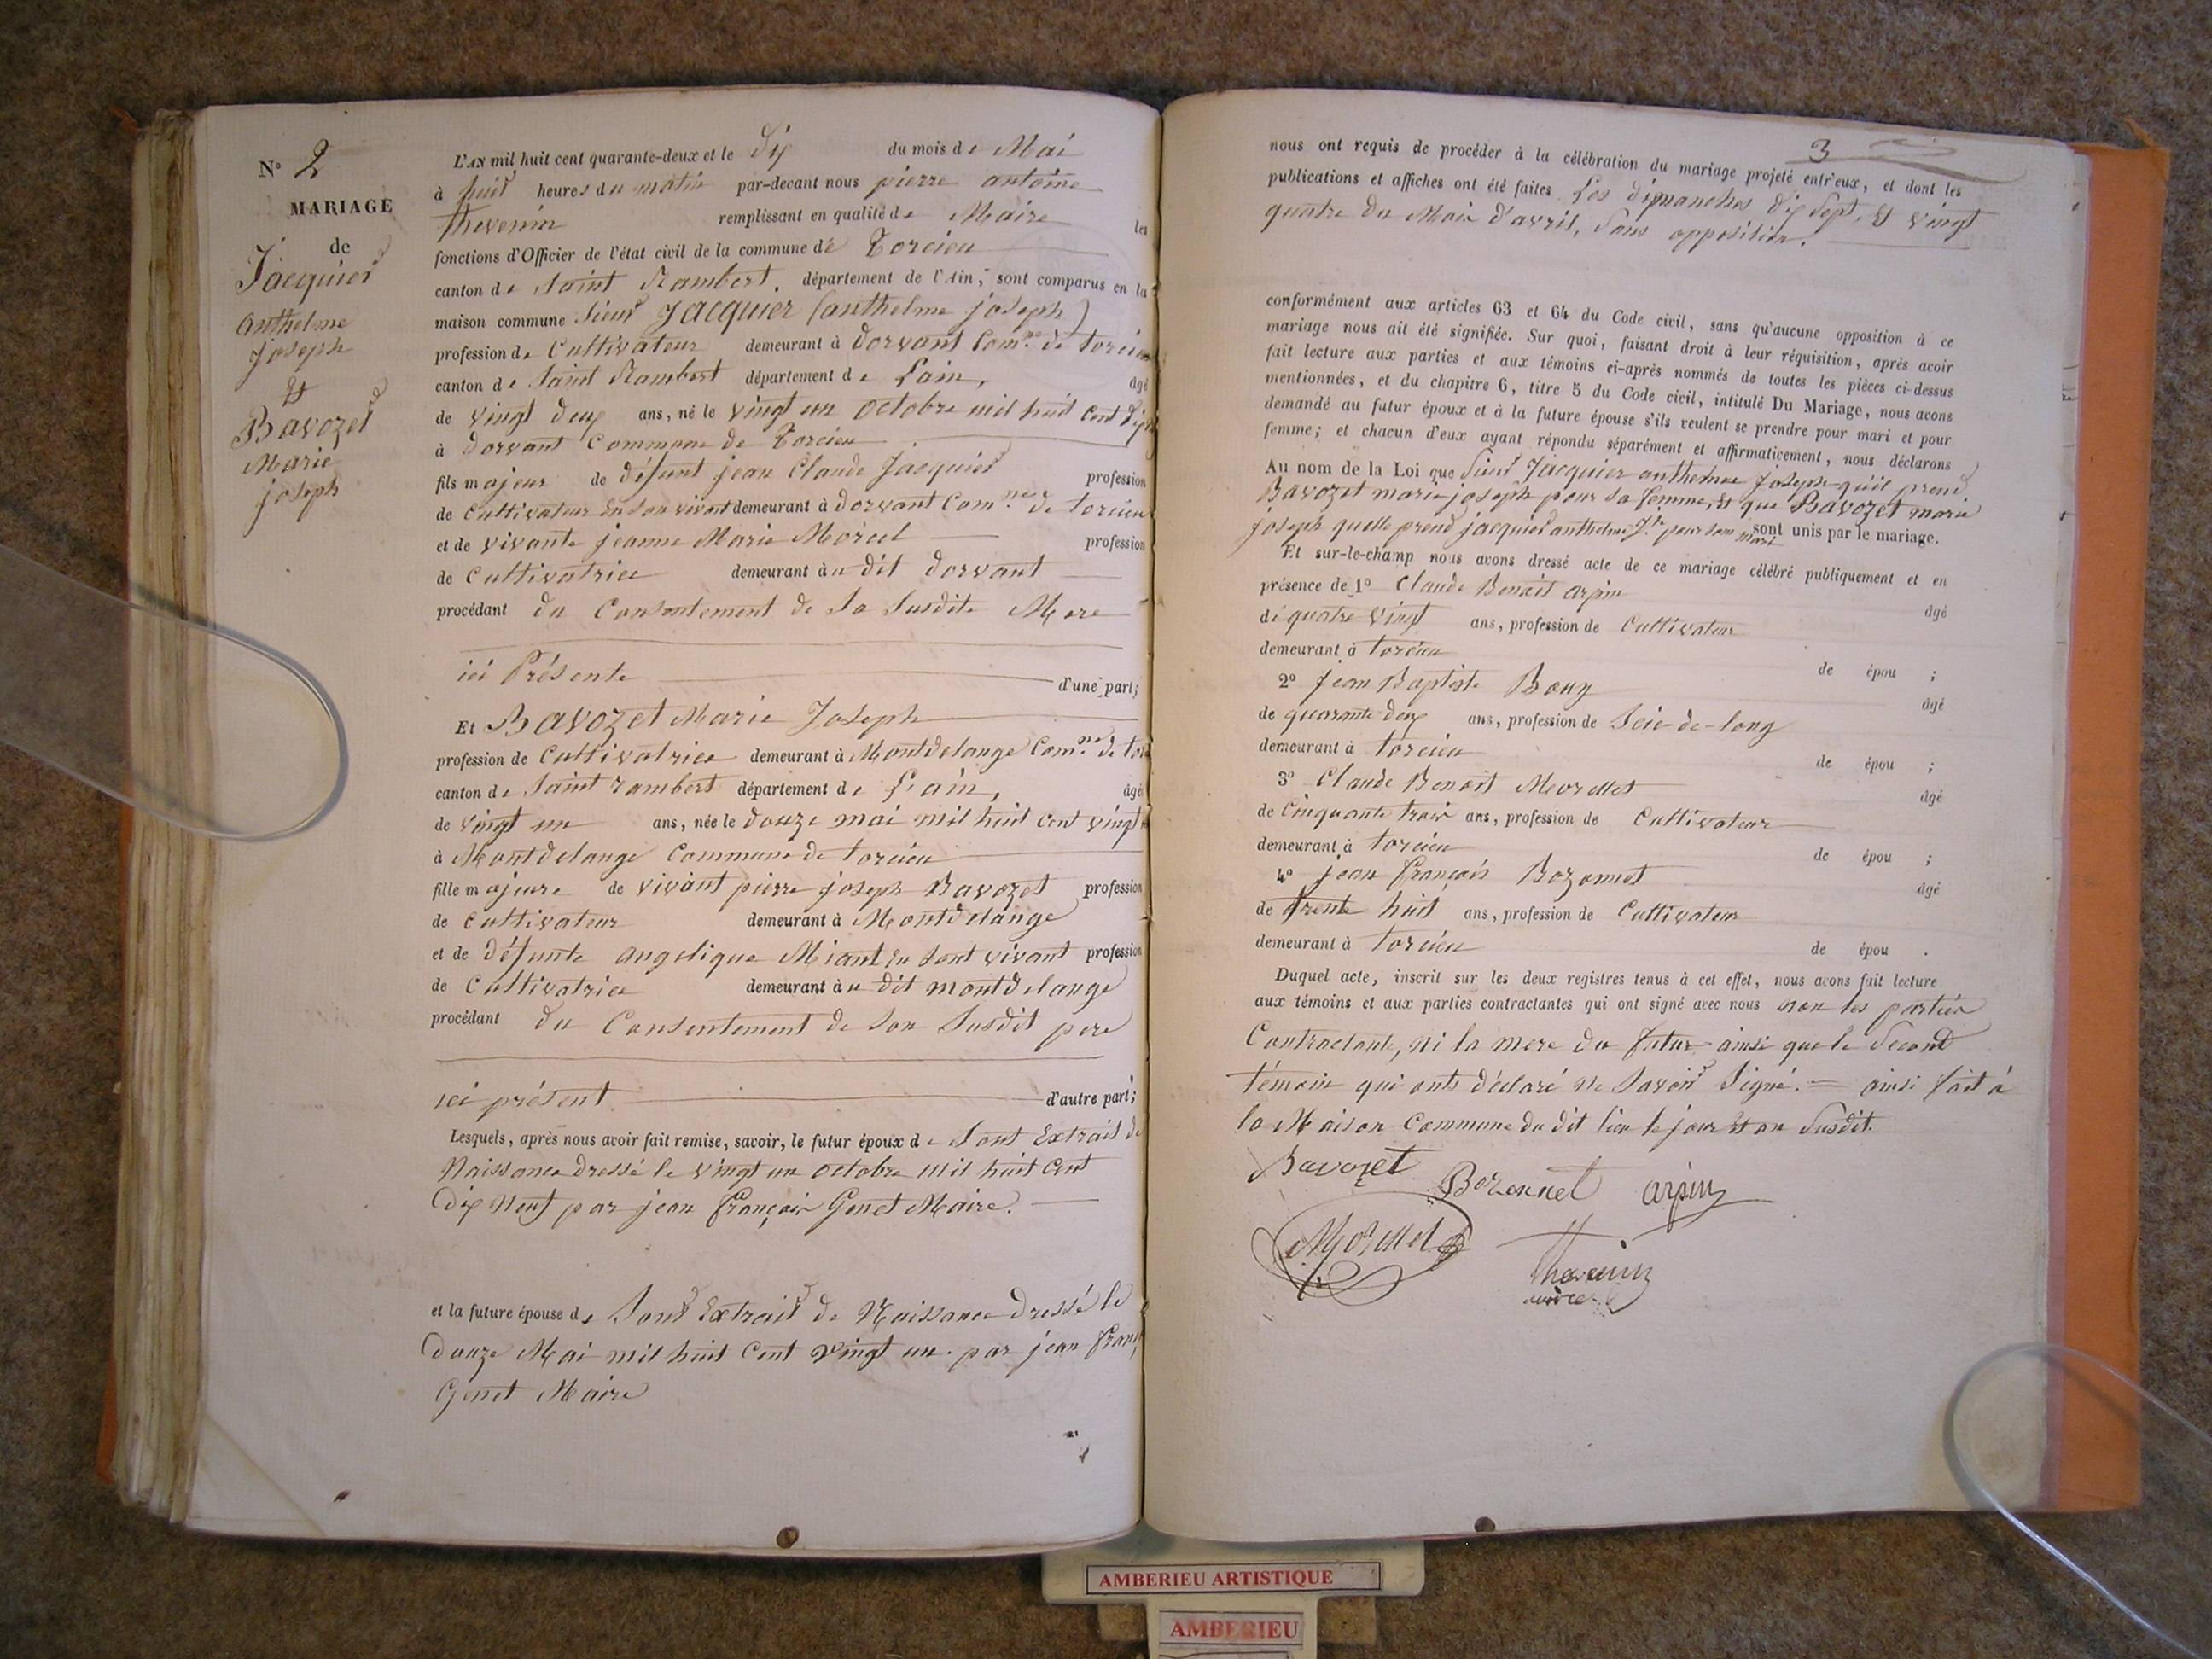 N° 2
MARIAGE
de
Jacquier
Anthelme
Joseph
Et
Bavozet
Marie
joseph
L'AN mil huit cent quarante-deux et le dix du mois de Mai
à huit heures du matin par-devant nous pierre antoine
thevenin remplissant en qualité de Maire les
fonctions d'Officier de l'état civil de la commune de Torcieu
canton de Saint Rambert, département de l'Ain, sont comparus en la
maison commune Sieur Jacquier (anthelme joseph)
profession de Cultivateur demeurant à dorvant Comne de torcieu
canton de Saint Rambert département de Lain, âgé
de vingt deux ans, né le vingt un octobre mil huit Cent dix
à Dorvant Commune de Torcieu
fils majeur de défunt jean Claude Jacquier profession
de Cultivateur En Son vivant demeurant à dorvant Comne de torcieu
et de vivante jeanne Marie Morcel profession
de Cultivatrice demeurant au dit dorvant
procédant du Consentement de Sa Susdite Mere
ici Présente d'une part;
Et Bavozet Marie Joseph
profession de Cultivatrice demeurant à Montdelange Comne de tor
canton de Saint rambert département de L'ain, âgé
de vingt un ans, née le douze mai mil huit cent vingt
à Montdelange Commune de torcieu
fille majeure de vivant pierre joseph Bavozet profession
de Cultivateur demeurant à Montdelange
et de défunte angelique Miant En Sont vivant profession
de Cultivatrice demeurant au dit montdelange
procédant du Consentement de Son Susdit pere
ici présent d'autre part;
Lesquels, après nous avoir fait remise, savoir, le futur époux de Sont Extrait de
Naissance dressé le vingt un octobre mil huit Cent
dix Neuf par jean françois Genet Maire.
et la future épouse de Sont Extrait de Naissance dressé le
douze Mai mil huit Cent vingt un par jean franç
Genet Maire
3
nous ont requis de procéder à la célébration du mariage projeté entr'eux, et dont les
publications et affiches ont été faites Les dimanches dix Sept, Et vingt
quatre du Mois d'avril, Sans opposition.
conformément aux articles 63 et 64 du Code civil, sans qu'aucune opposition à ce
mariage nous ait été signifiée. Sur quoi, faisant droit à leur réquisition, après avoir
fait lecture aux parties et aux témoins ci-après nommés de toutes les pièces ci-dessus
mentionnées, et du chapitre 6, titre 5 du Code civil, intitulé Du Mariage, nous avons
demandé au futur époux et à la future épouse s'ils veulent se prendre pour mari et pour
femme; et chacun d'eux ayant répondu séparément et affirmativement, nous déclarons
Au nom de la Loi que Sieur Jacquier anthelme Joseph qu'il prend
Bavozet marie joseph pour Sa femme, Et que Bavozet marie
joseph quelle prend jacquier anthelme Jh pour Son mari sont unis par le mariage.
Et sur-le-champ nous avons dressé acte de ce mariage célébré publiquement et en
présence de 1° Claude Benoit arpin âgé
de quatre vingt ans, profession de Cultivateur
demeurant à torcieu de épou ;
2° Jean Baptiste Bouy âgé
de quarante deux ans, profession de Scie-de-long
demeurant à torcieu de épou ;
3° Claude Benoit Morellet âgé
de Cinquante trois ans, profession de Cultivateur
demeurant à torcieu de épou ;
4° jean françois Bozonnet âgé
de trente huit ans, profession de Cultivateur
demeurant à torcieu de épou .
Duquel acte, inscrit sur les deux registres tenus à cet effet, nous avons fait lecture
aux témoins et aux parties contractantes qui ont signé avec nous non les parties
Contractante, ni la mere du futur ainsi que le Second
témoin qui onts déclaré ne Savoir Signé. ainsi fait à
la Maison Commune du dit lieu le jour Et an Susdit.
Bavozet Bozonnet arpin
Morellet
Thevenin
maire
AMBERIEU ARTISTIQUE
AMBERIEU